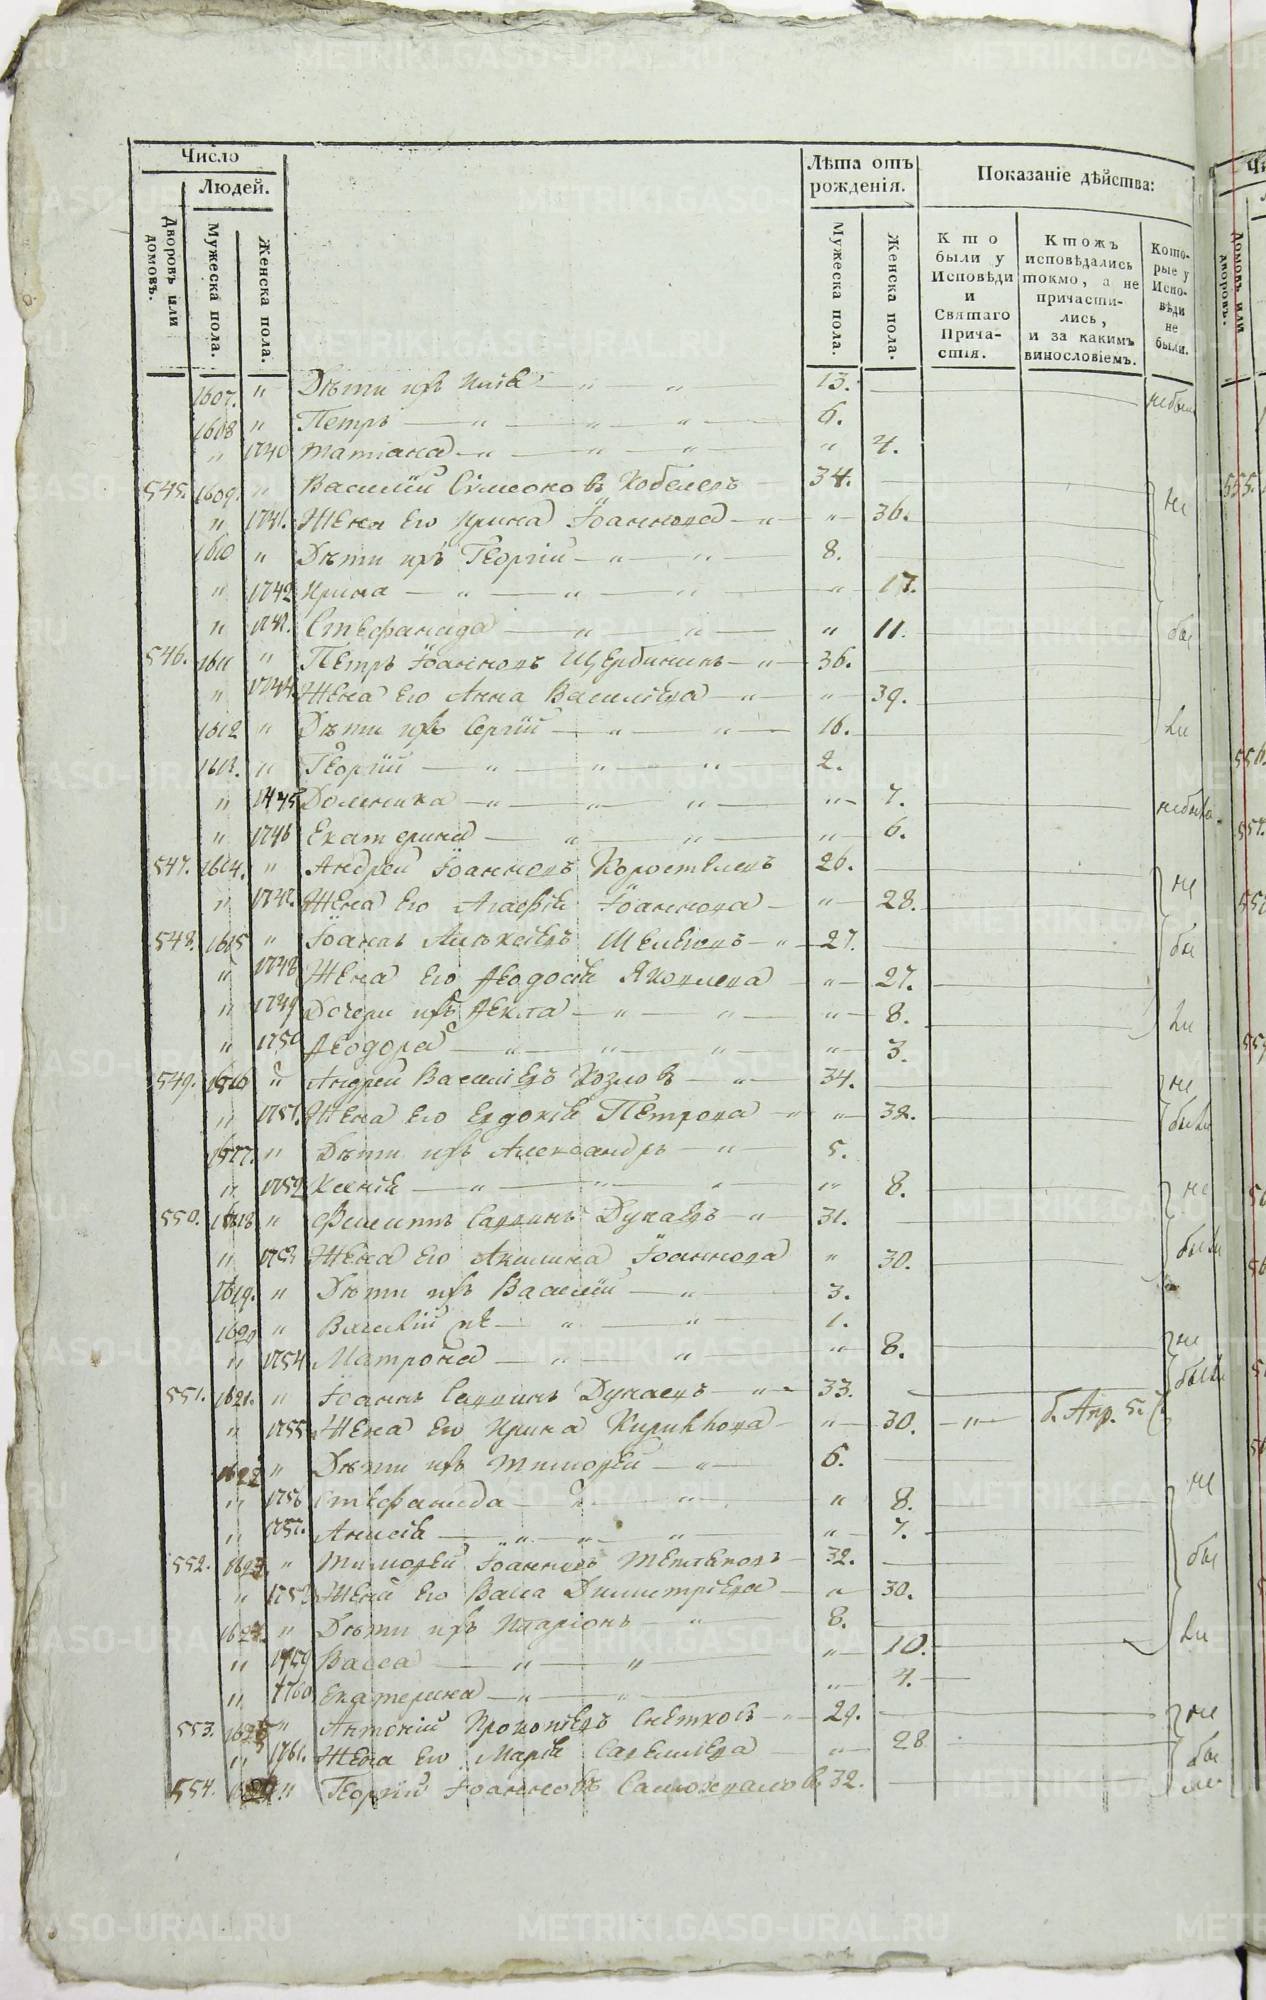 Число
Людей.
Дворовъ или домовъ.
Мужеска пола.
Женска пола.
Лѣта отъ рожденія.
Мужеска пола.
Женска пола.
Показаніе дѣйства:
Кто были у Исповѣди и Святаго Причастія.
Ктожъ исповѣдались токмо, а не причастились, и за какимъ винословіемъ.
Которые у Исповѣди не были.
1607. " Дѣти ихъ 13.
1608 " Петръ " " " 6.
" 1740 Татіана " " " " 4.
545. 1609. " Василій Сѵмеоновъ Кобелевъ 34. не
" 1741. Жена Его Ирина Іоаннова " " 36.
1610 " Дѣти ихъ Георгій " " 8.
" 1742 Ирина " " " " 17.
" Стефанида " " " 11. бы
546. 1611 " Петръ Іоанновъ Щербининъ " 36.
" 1744 Жена Его Анна Василіева " " 39.
1612 " Дѣти ихъ Сергій " " 16. ли
1613. " Георгій " " " 2.
" 1745 Доминика " " " " 7.
" 1746 Екатерина " " " 6.
547. 1614. " Андрей Іоанновъ Коростелевъ 26. не
" 1747. Жена Его Агафія Іоаннова " 28.
548. 1615 " Іоаннъ Алексіевъ Шелеговъ " 27. бы
" 1748 Жена Его Ѳеодосія Яковлева " 27.
" 1749 Дочери ихъ Ѳекла " " " 8. ли
" 1750 Ѳеодора " " " " 3.
549. 1616 " Андрей Василіевъ Козловъ " 34. не
" 1751. Жена Его Евдокія Петрова " " 32. были
1617. " Дѣти ихъ Александръ " 5.
" 1752 Ксенія " " " " 8. не
550. 1618 " Филиппъ Саввинъ Дукаевъ " 31.
" 1753 Жена Его Акилина Іоаннова " 30. были
1619. " Дѣти ихъ Василій " 3.
1620 " Василій " " 1.
" 1754 Матрона " " " 8. не
551. 1621. " Іоаннъ Саввинъ Дукаевъ " 33. были
" 1755 Жена Его Ирина Кириллова " 30. "
1622 " Дѣти ихъ Тимоѳей " 6.
" 1756 Стефанида " " " 8. не
" 1757. Анисія " " " " 7.
552. 1623. " Тимоѳей Іоанновъ 32. бы
" 1758 Жена Его Васса Димитріева " 30.
1624. " Дѣти ихъ Иларіонъ " 8. ли
" 1759 Васса " " " 10.
" 1760 Екатерина " " " 4.
553. 1625 " Антоній Прокопіевъ Снетковъ " 29. не
" 1761. Жена Его Марія Савеліева " 28 бы
554. " Георгій Іоанновъ 32. ли